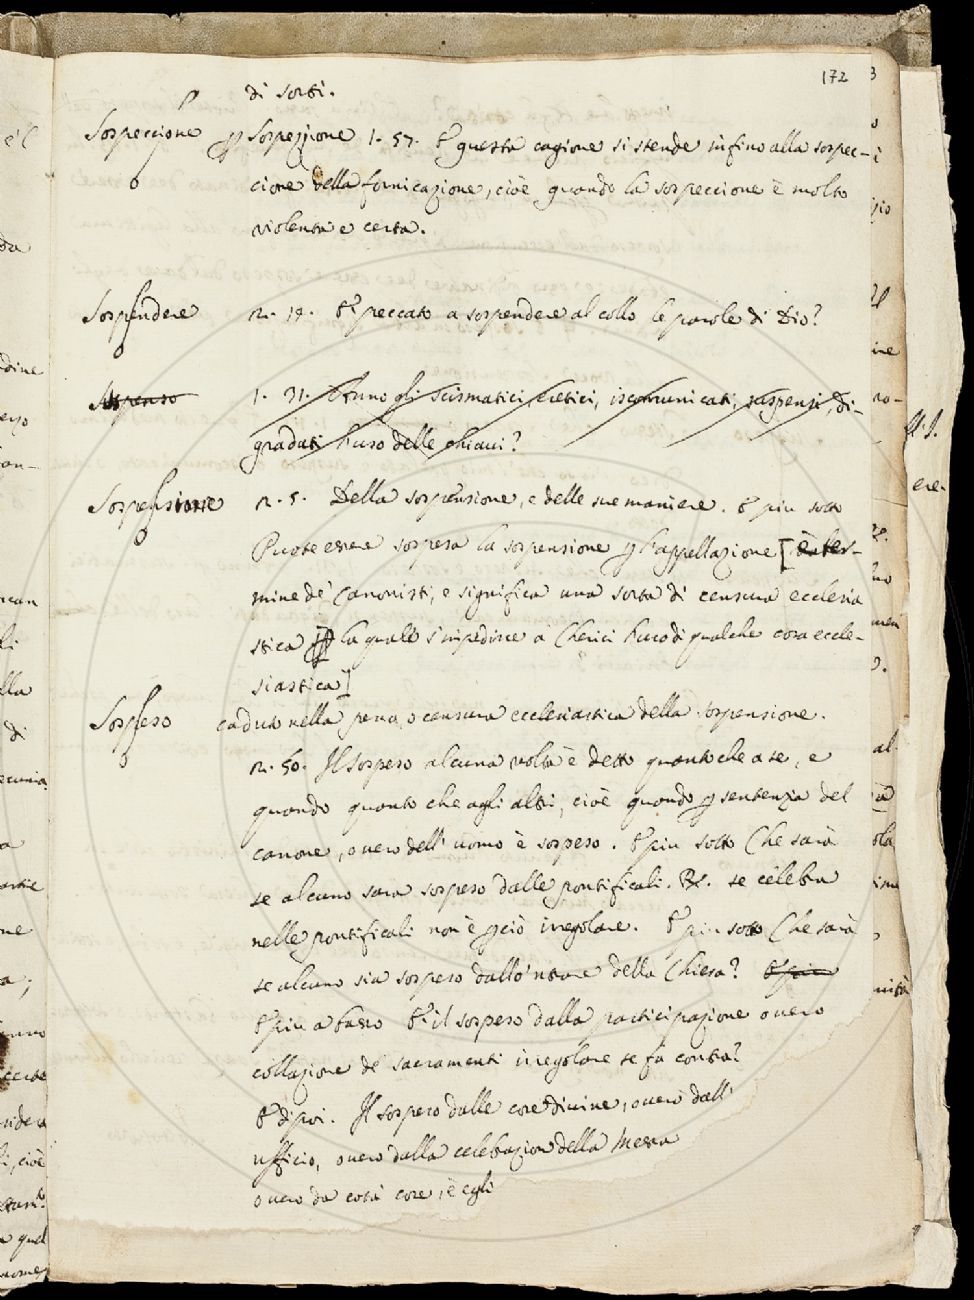 172
di sorti.
Sospeccione ꝑ Sospezzione 1. 57. E questa cagione si stende infino alla sospec-
cione della fornicazione, cioè quando la sospeccione è molto
violenta e certa.
Sospendere 2. 14. E' peccato a sospendere al collo le parole di Dio?
Sospenso 1. 31. Anno gli Scismatici, eretici, iscomunicati, suspensi, di-
gradati l'uso delle chiavi?
Sospensione 2. 5. Della sospensione, e delle sue maniere. E piu sotto
Puote essere sospesa la sospensione ꝑ l'appellazione [è ter-
mine de' Canonisti, e significa una sorta di censura ecclesia
stica ꝑ la quale s'impedisce a' Cherici l'uso di qualche cosa eccle-
siastica]
Sospeso caduto nella pena, o censura ecclesiastica della sospensione.
2. 50. Il sospeso alcuna volta è detto quanto che a se, e
quando quanto che agli altri, cioè quando ꝑ sentenzia del
canone, overo dell' uomo è sospeso. E piu sotto Che sarà
se alcuno sara sospeso dalle pontificali. R. se celebra
nelle pontificali non è ꝑ ciò irregolare. E piu sotto Che sarà
se alcuno sia sospeso dallo'ntrare della Chiesa? E piu
E piu a basso E' il sospeso dalla participazione overo
collazione de' sacramenti irregolare se fà contra?
E dipoi. Il sospeso dalle cose divine, overo dall'
ufficio, overo dalla celebrazion della Messa
overo da cotà cose, è egli